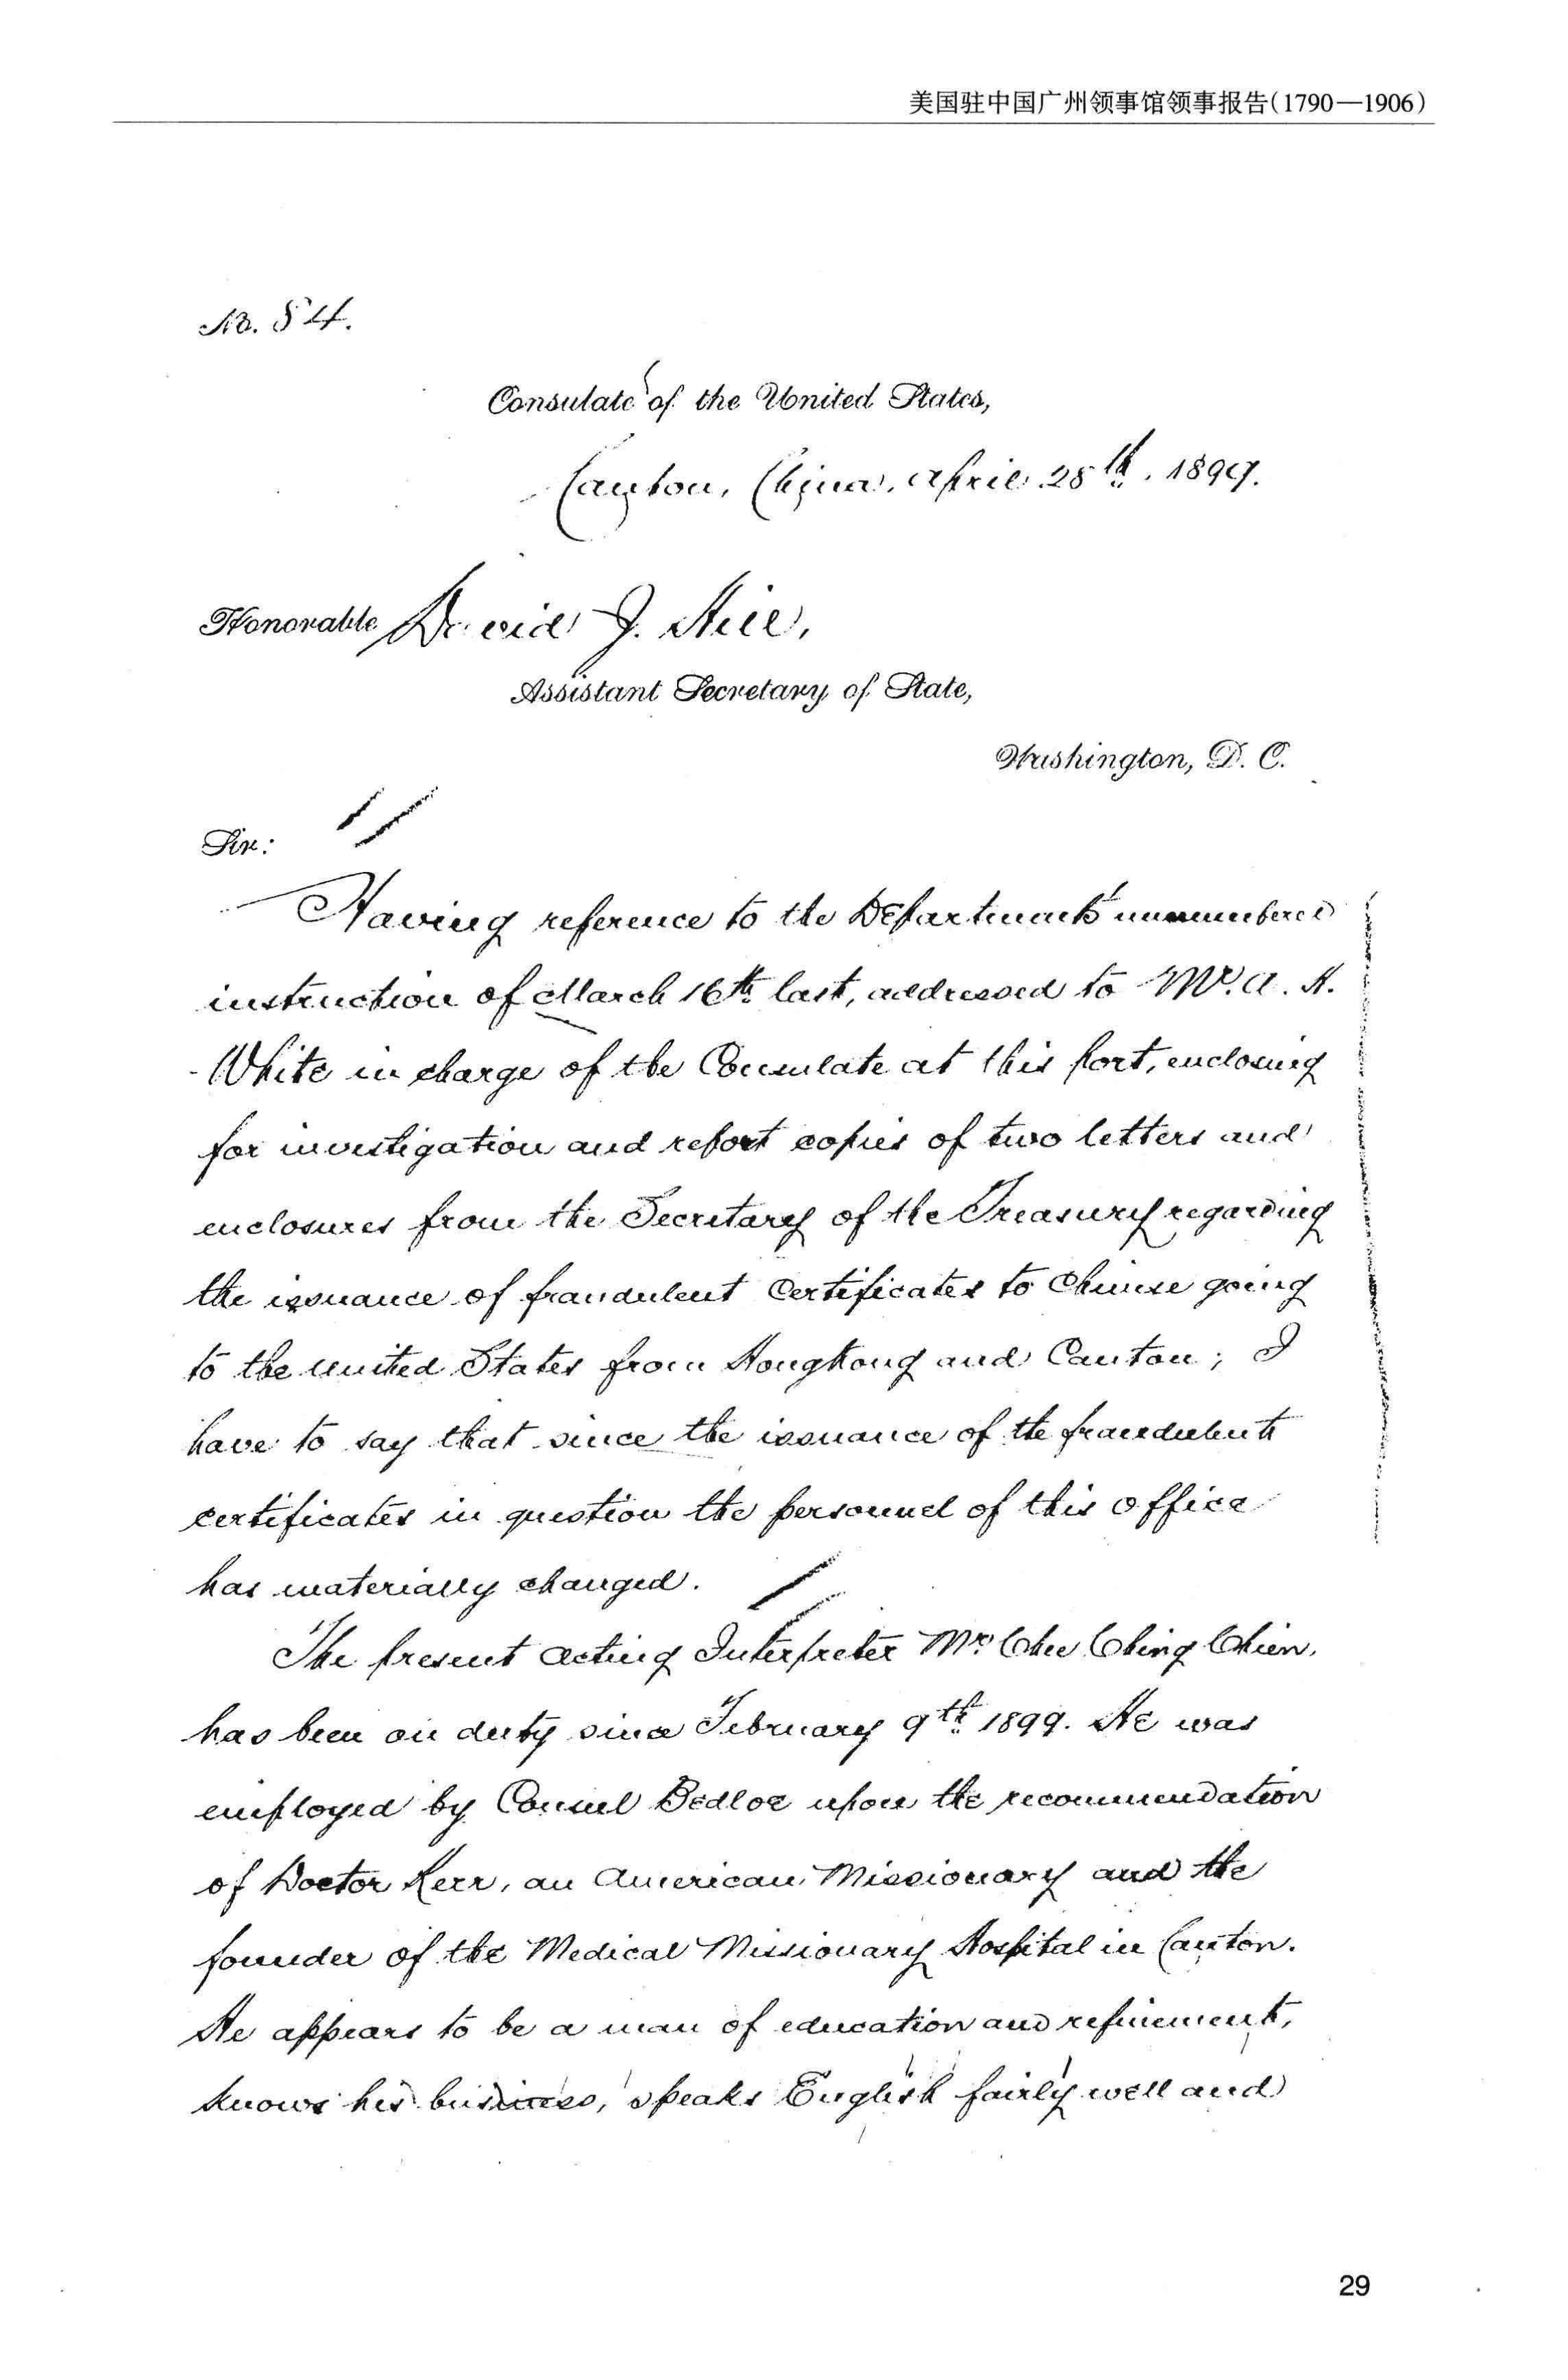 美国驻中国广州领事馆领事报告(1790—1906)
No. 84.
Consulate of the United States,
Canton, China, April 28th, 1899.
Honorable David J. Hill,
Assistant Secretary of State,
Washington, D. C.
Sir:
Having reference to the Department's unnumbered
instruction of March 16th last, addressed to Mr. A. H.
White in charge of the Consulate at this port, enclosing
for investigation and report copies of two letters and
enclosures from the Secretary of the Treasury regarding
the issuance of fraudulent Certificates to Chinese going
to the United States from Hongkong and Canton; I
have to say that since the issuance of the fraudulent
certificates in question the personnel of this office
has materially changed.
The present acting Interpreter Mr. Chu Ching Chien,
has been on duty since February 9th 1899. He was
employed by Consul Bedloe upon the recommendation
of Doctor Kerr, an American Missionary and the
founder of the Medical Missionary Hospital in Canton.
He appears to be a man of education and refinement,
knows his business, speaks English fairly well and
29